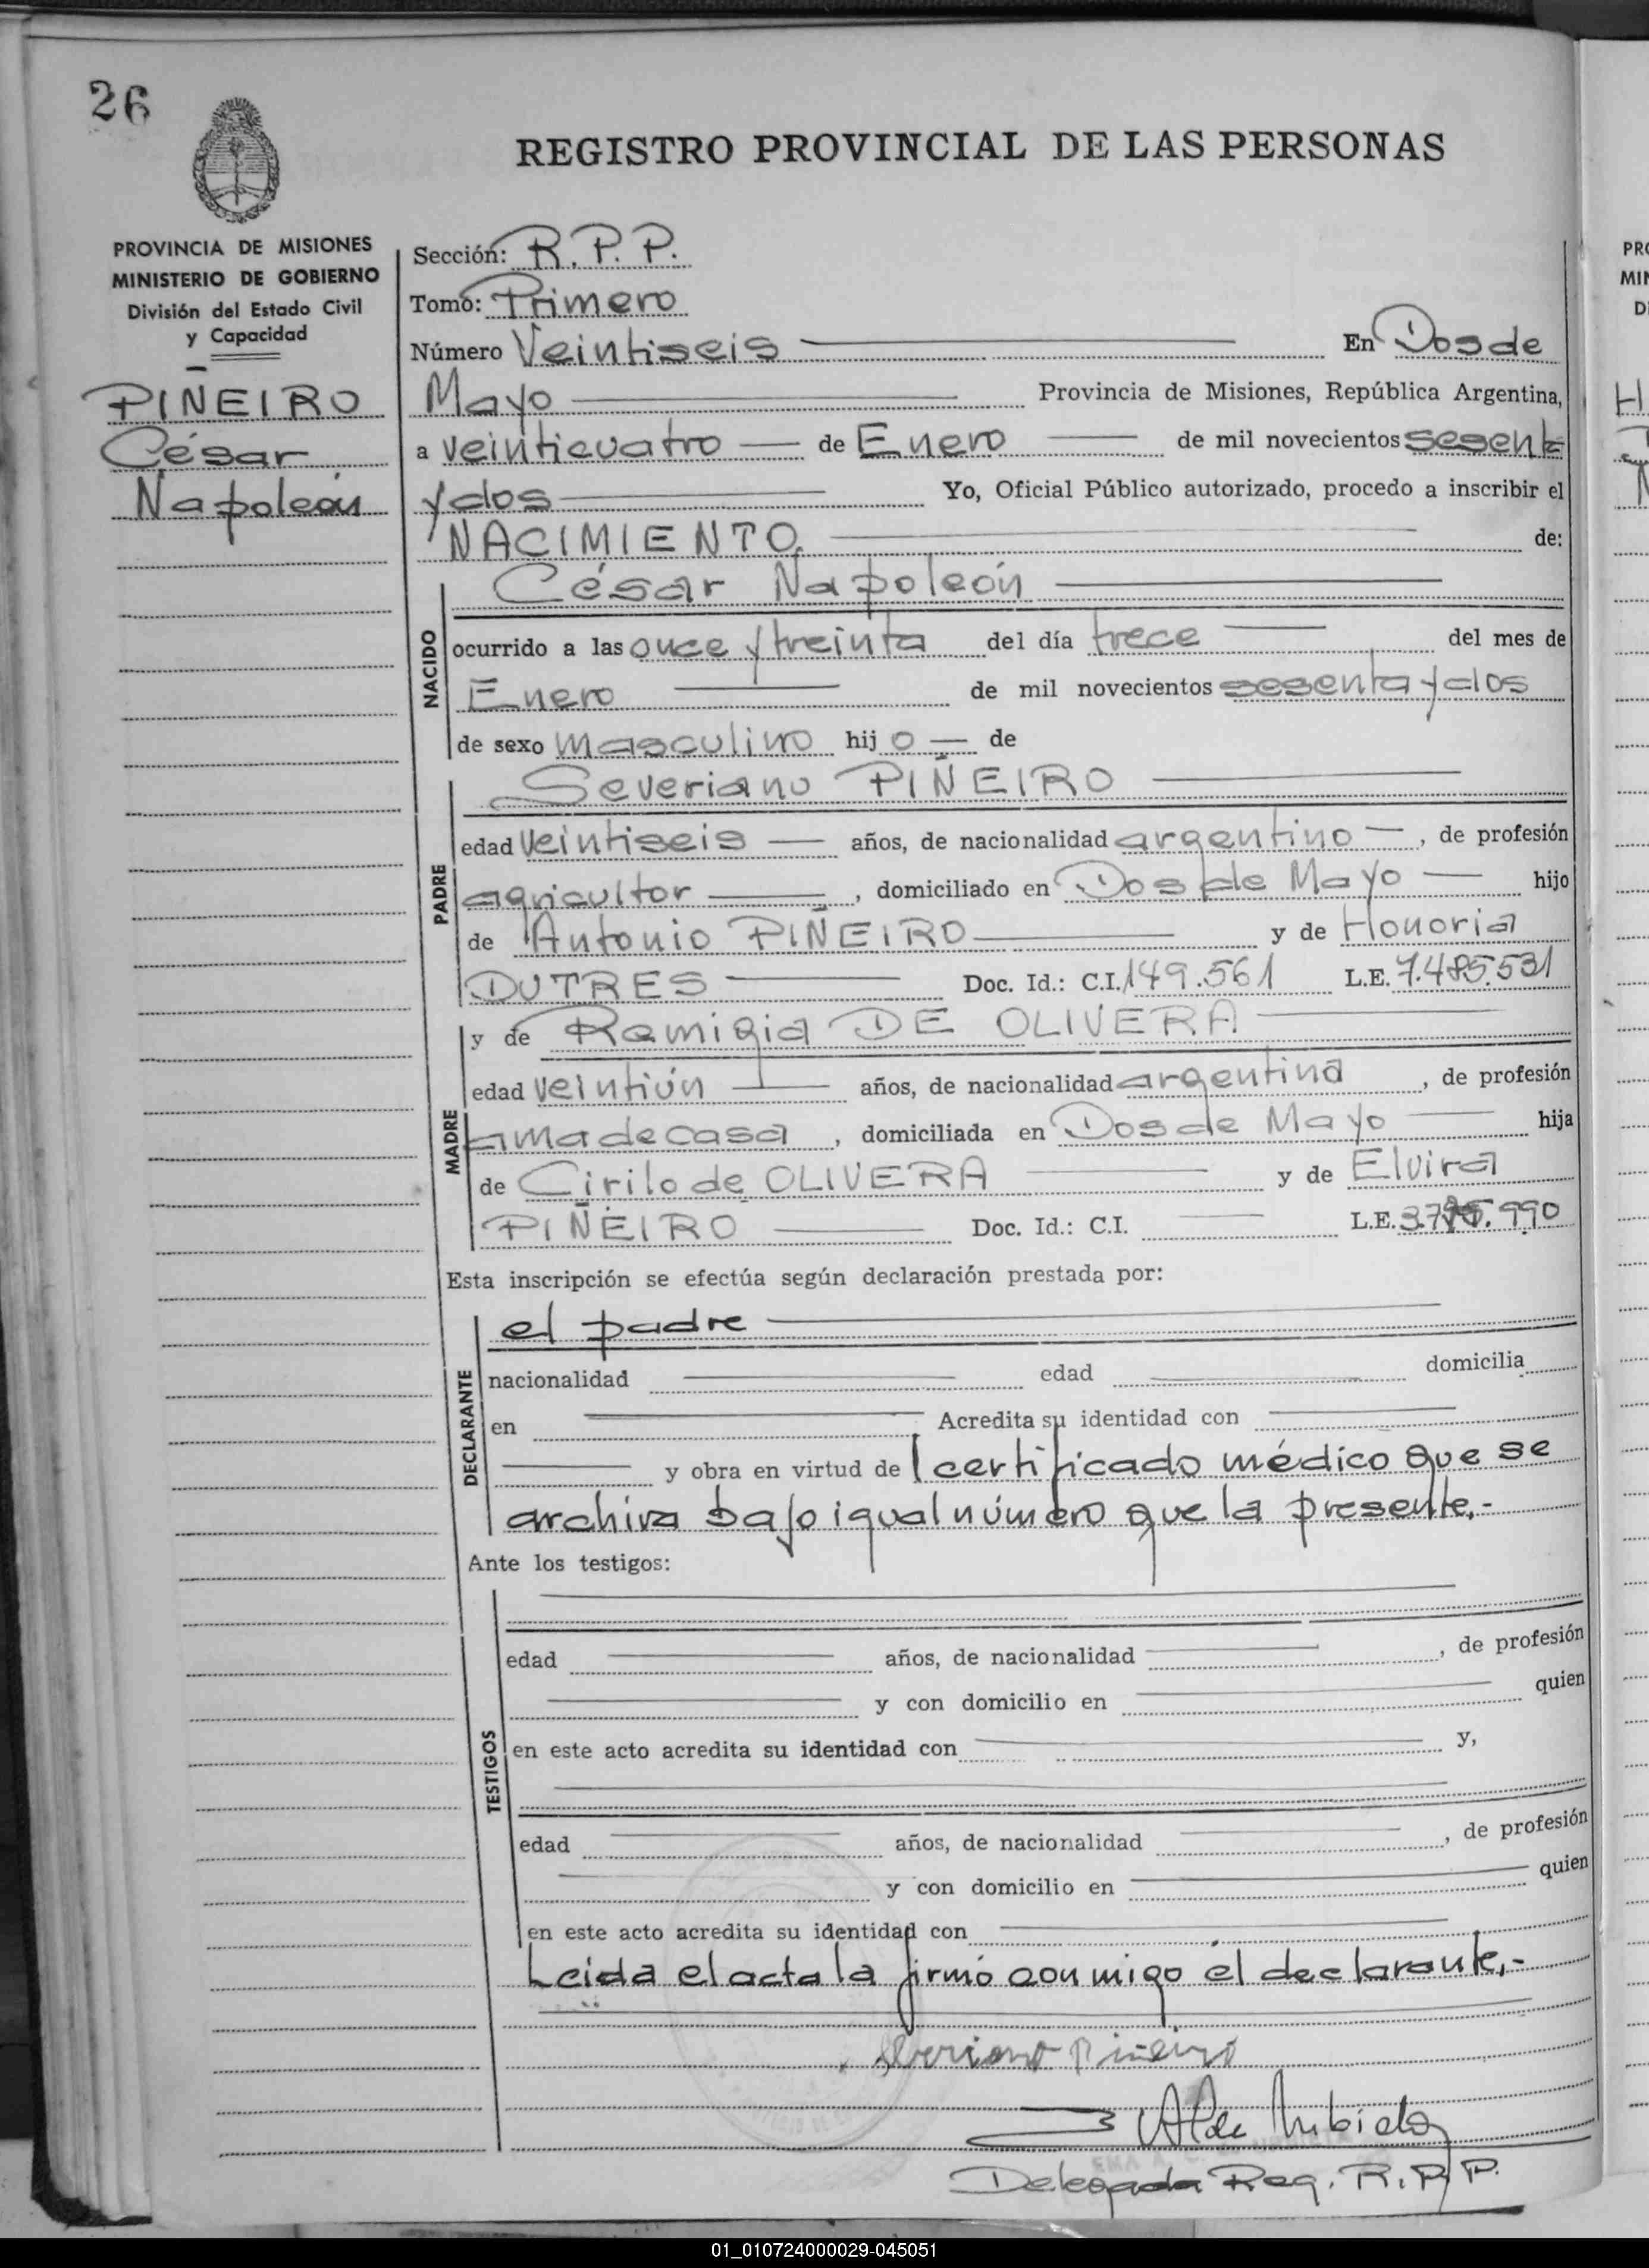 26
REGISTRO PROVINCIAL DE LAS PERSONAS
PROVINCIA DE MISIONES
MINISTERIO DE GOBIERNO
División del Estado Civil
y Capacidad
PIÑEIRO
César
Napoleón
Sección: R.P.P.
Tomo: Primero
Número Veintiseis En Dos de
Mayo Provincia de Misiones, República Argentina,
a veinticuatro de Enero de mil novecientos sesenta
y dos Yo, Oficial Público autorizado, procedo a inscribir el
NACIMIENTO. de:
César Napoleón
NACIDO
ocurrido a las once y treinta del día trece del mes de
Enero de mil novecientos sesenta y dos
de sexo masculino hijo de
Severiano PIÑEIRO
PADRE
edad veintiseis años, de nacionalidad argentino, de profesión
agricultor, domiciliado en Dos de Mayo hijo
de Antonio PIÑEIRO y de Honoria
DUTRES Doc. Id.: C.I. 149.561 L.E. 7.485.531
y de Remigia DE OLIVERA
MADRE
edad veintiún años, de nacionalidad argentina, de profesión
ama de casa, domiciliada en Dos de Mayo hija
de Cirilo de OLIVERA y de Elvira
PIÑEIRO Doc. Id.: C.I. L.E. 990
Esta inscripción se efectúa según declaración prestada por:
el padre
DECLARANTE
nacionalidad edad domicilia
en Acredita su identidad con
y obra en virtud del certificado médico que se
archiva bajo igual número que la presente.-
Ante los testigos:
TESTIGOS
edad años, de nacionalidad , de profesión
y con domicilio en quien
en este acto acredita su identidad con y,
edad años, de nacionalidad , de profesión
y con domicilio en quien
en este acto acredita su identidad con
Leída el acta la firmó conmigo el declarante.-
Severiano Piñeiro
Delegada Reg. R.P.P.
PRO
MIN
D
01_010724000029-045051